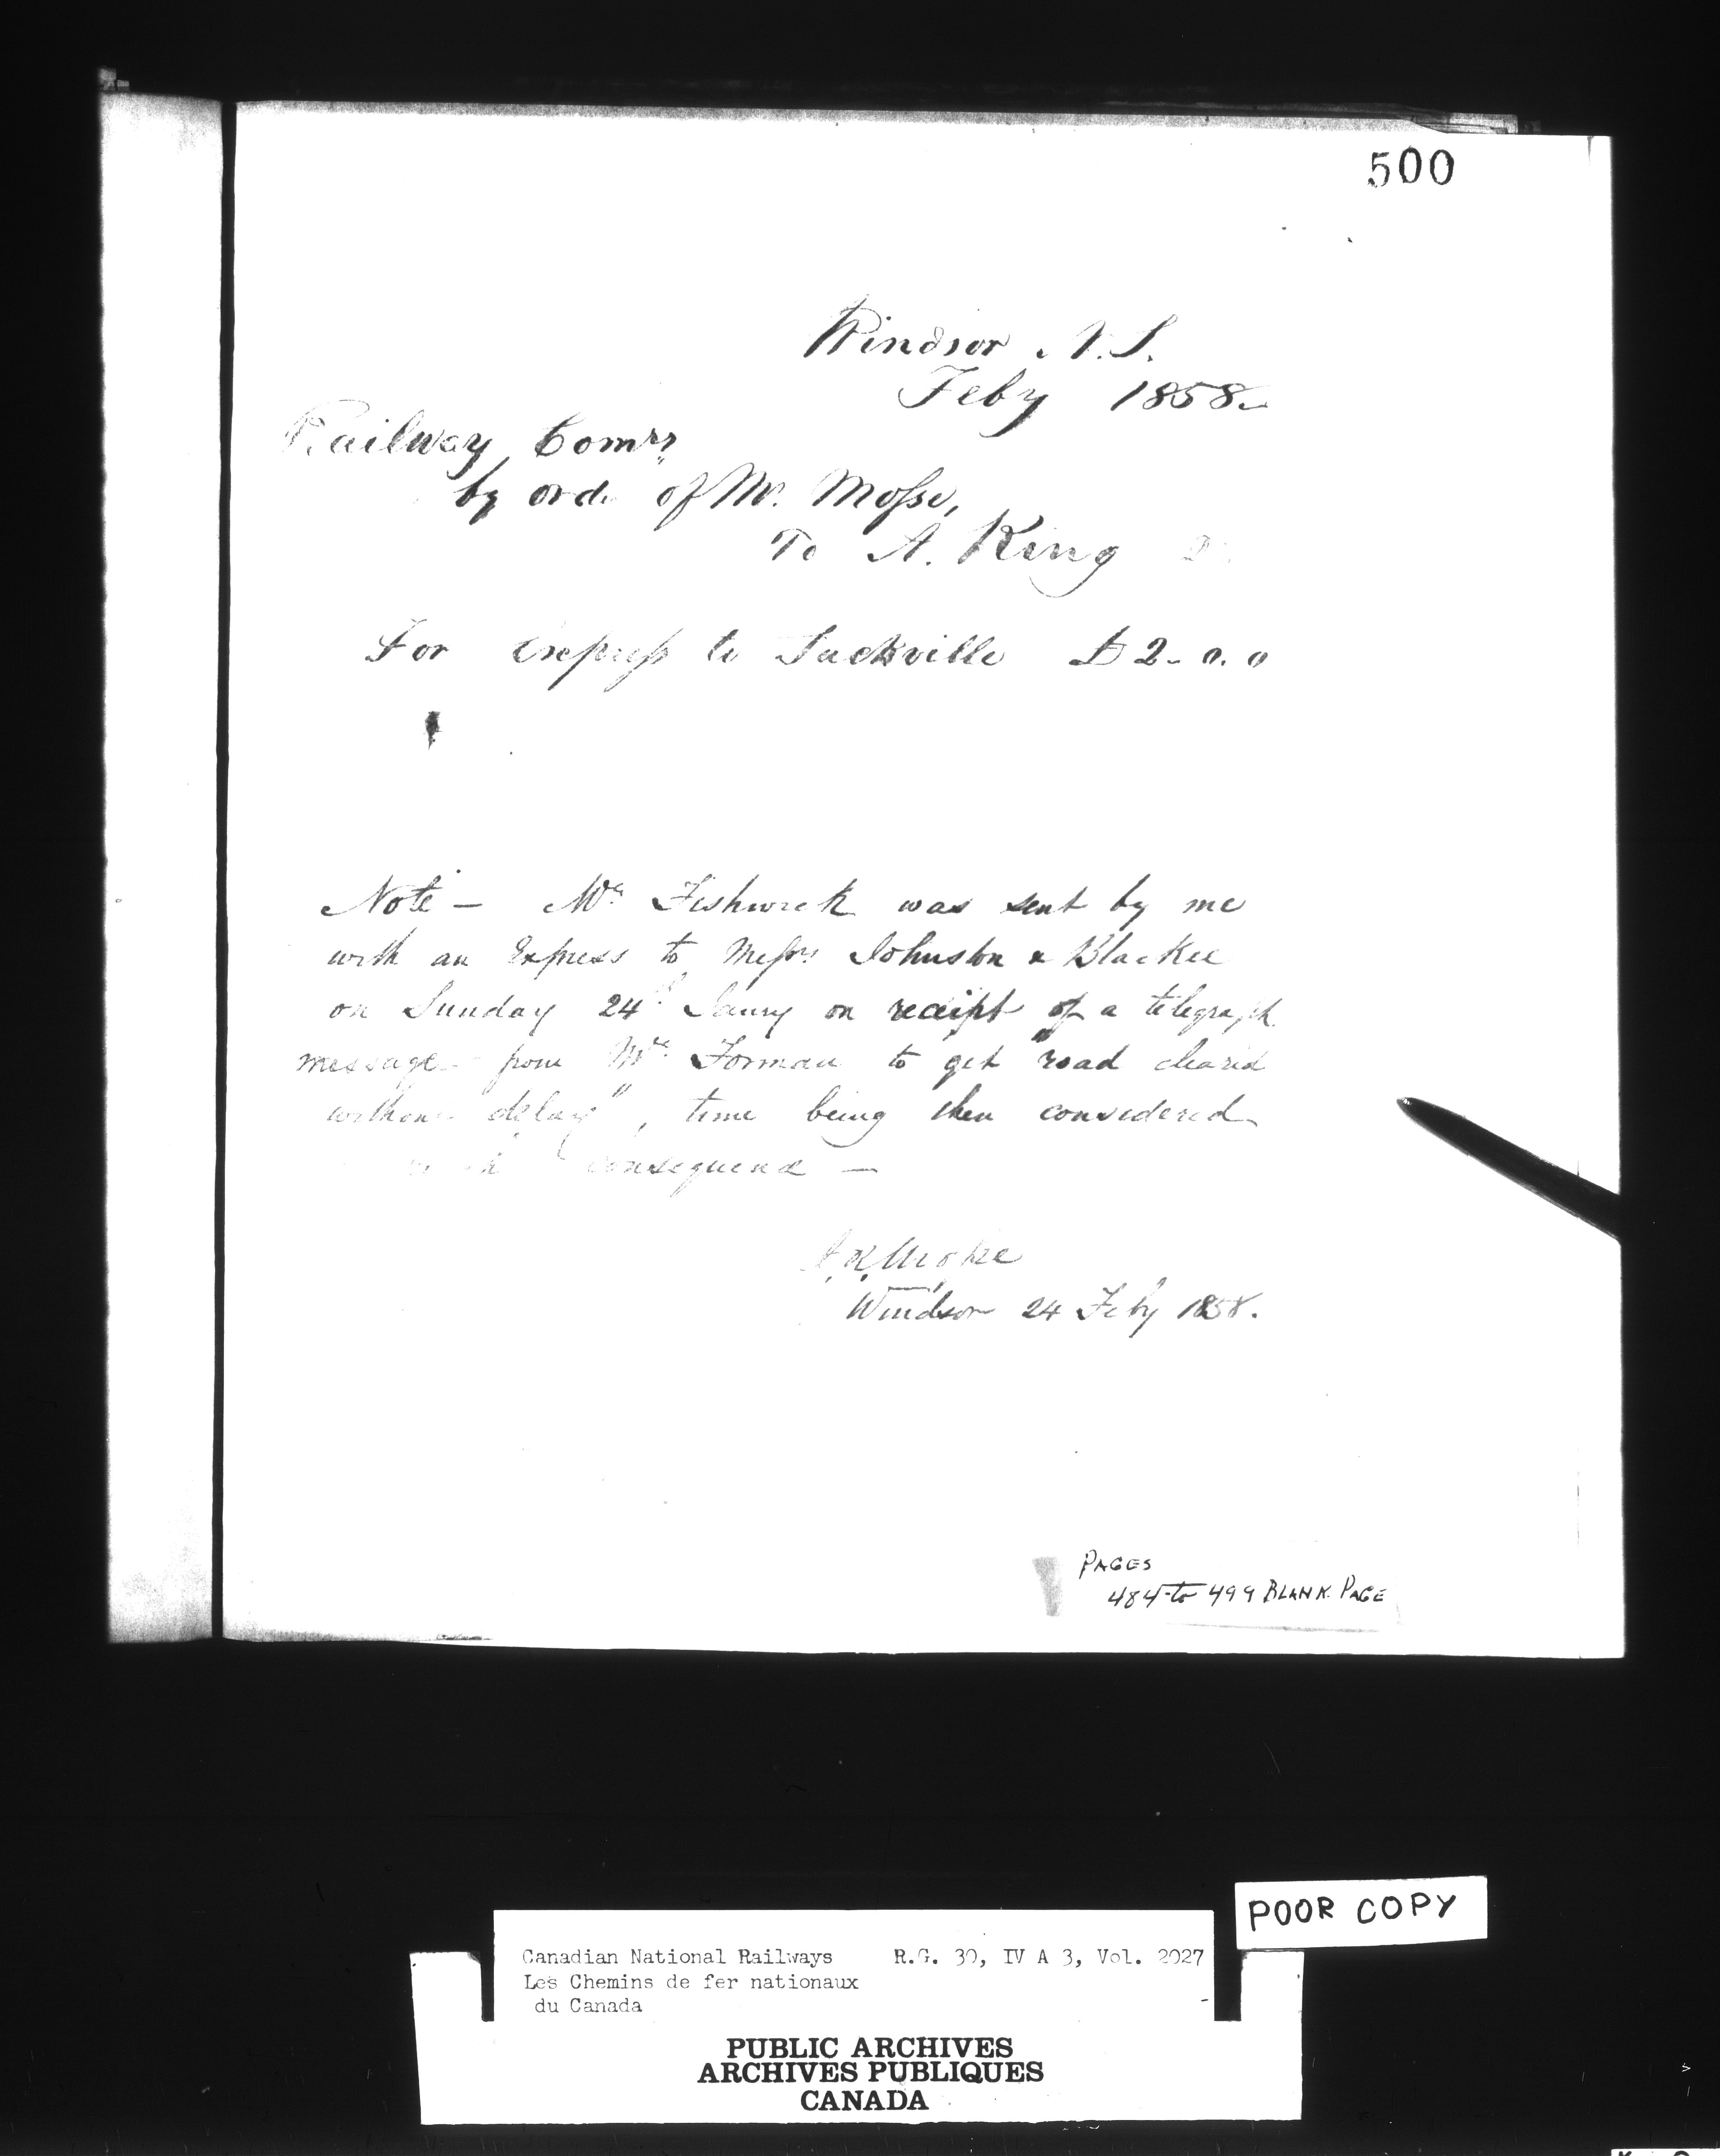 500
Windsor N.S.
Feby 1858
Railway Comrs
by orde of Mr. Mosse,
To A. King
For Express to Sackville £2-0.0
Note - Mr Fishwick was sent by me
with an Express to Messrs Johnston & Blackie
on Sunday 24th Jany on receipt of a telegraph
message from Mr Forman to get "road cleared
without delay", time being then considered
consequence -
Windsor 24 Feby 1858.
PAGES
484 to 499 BLANK PAGE
POOR COPY
Canadian National Railways R.G. 30, IV A 3, Vol. 2027
Les Chemins de fer nationaux
du Canada
PUBLIC ARCHIVES
ARCHIVES PUBLIQUES
CANADA